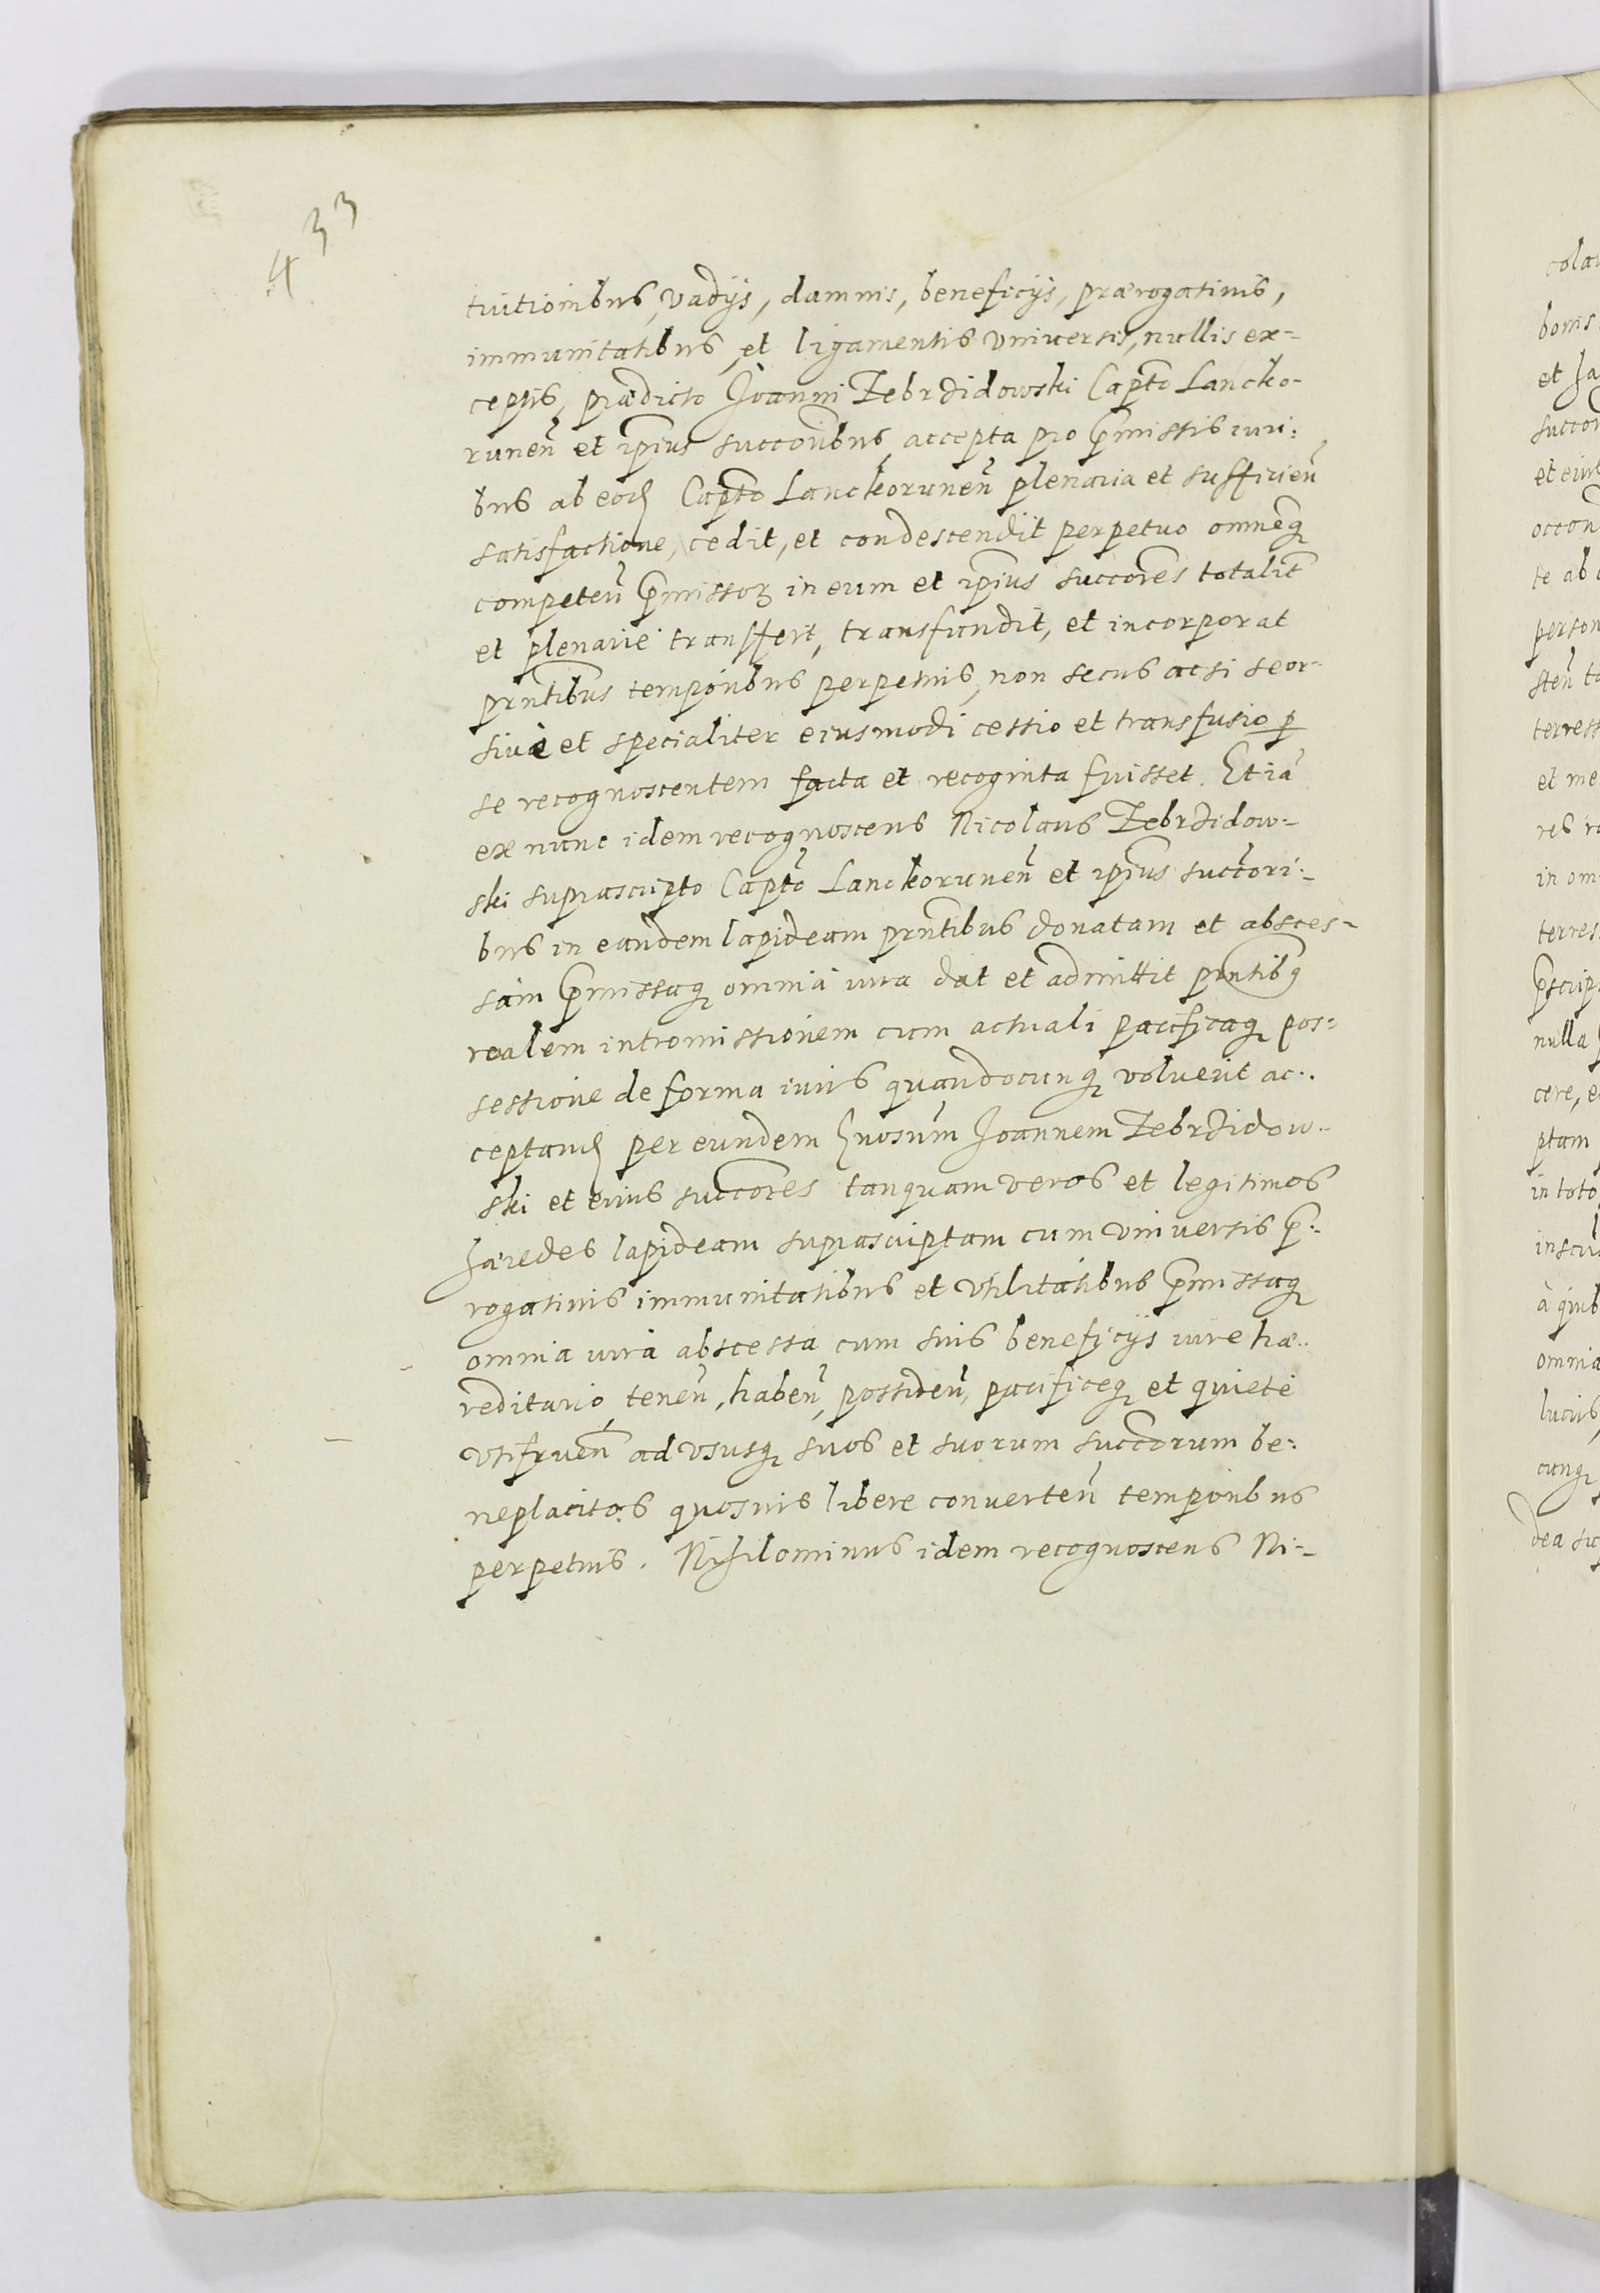 433
tuitionibus, vadijs, damnis, beneficijs, prærogatiuis,
immunitatibus, et ligamentis vniuersis, nullis ex-
ceptis, prædicto Joanni Zebrzidowski Capto Lancko-
runen et ipius succoribus, accepta pro pmissis iuri:
bus ab eod Capto Lanckorunen plenaria et sufficien
satisfactione, cedit, et condescendit perpetuo omneq
competen pmissor in eum et ipius succores totalit
et plenarie transffert, transfundit, et incorporat
prntibus temporibus perpetuis, non secus ac si seor-
siuè et specialiter eiusmodi cessio et transfusio p
se recognoscentem facta et recognita fuisset. Et iã
ex nunc idem recognoscens Nicolaus Zebrzidow-
ski suprascripto Capto Lanckorunen et ipius succori-
bus in eandem lapideam prntibus donatam et absces-
sam pmissaq omnia iura dat et admittit prntibq
realem intromissionem cum actuali pacificaq pos-
sessione de forma iuris quandocunq voluerit ac:
ceptand per eundem Gnosum Joannem Zebrzidow-
ski et eius succores tanquam veros et legitimos
hæredes lapideam suprascriptam cum vniuersis p:
rogatiuis immunitatibus et vtilitatibus pmissaq
omnia iura abscessa cum suis beneficijs iure hæ:
reditario tenen, haben, possiden, pacificeq et quietè
vtifruen ad vsusq suos et suorum succorum be:
neplacitos quosuis libere conuerten temporibus
perpetuis. Nihilominus idem recognoscens Ni-
colau
bonis
et Ja
succor
occon
te ab
person
terrest
et me
in om
terres
nulla
cere, e
ptam
in toto
omnia
cunq